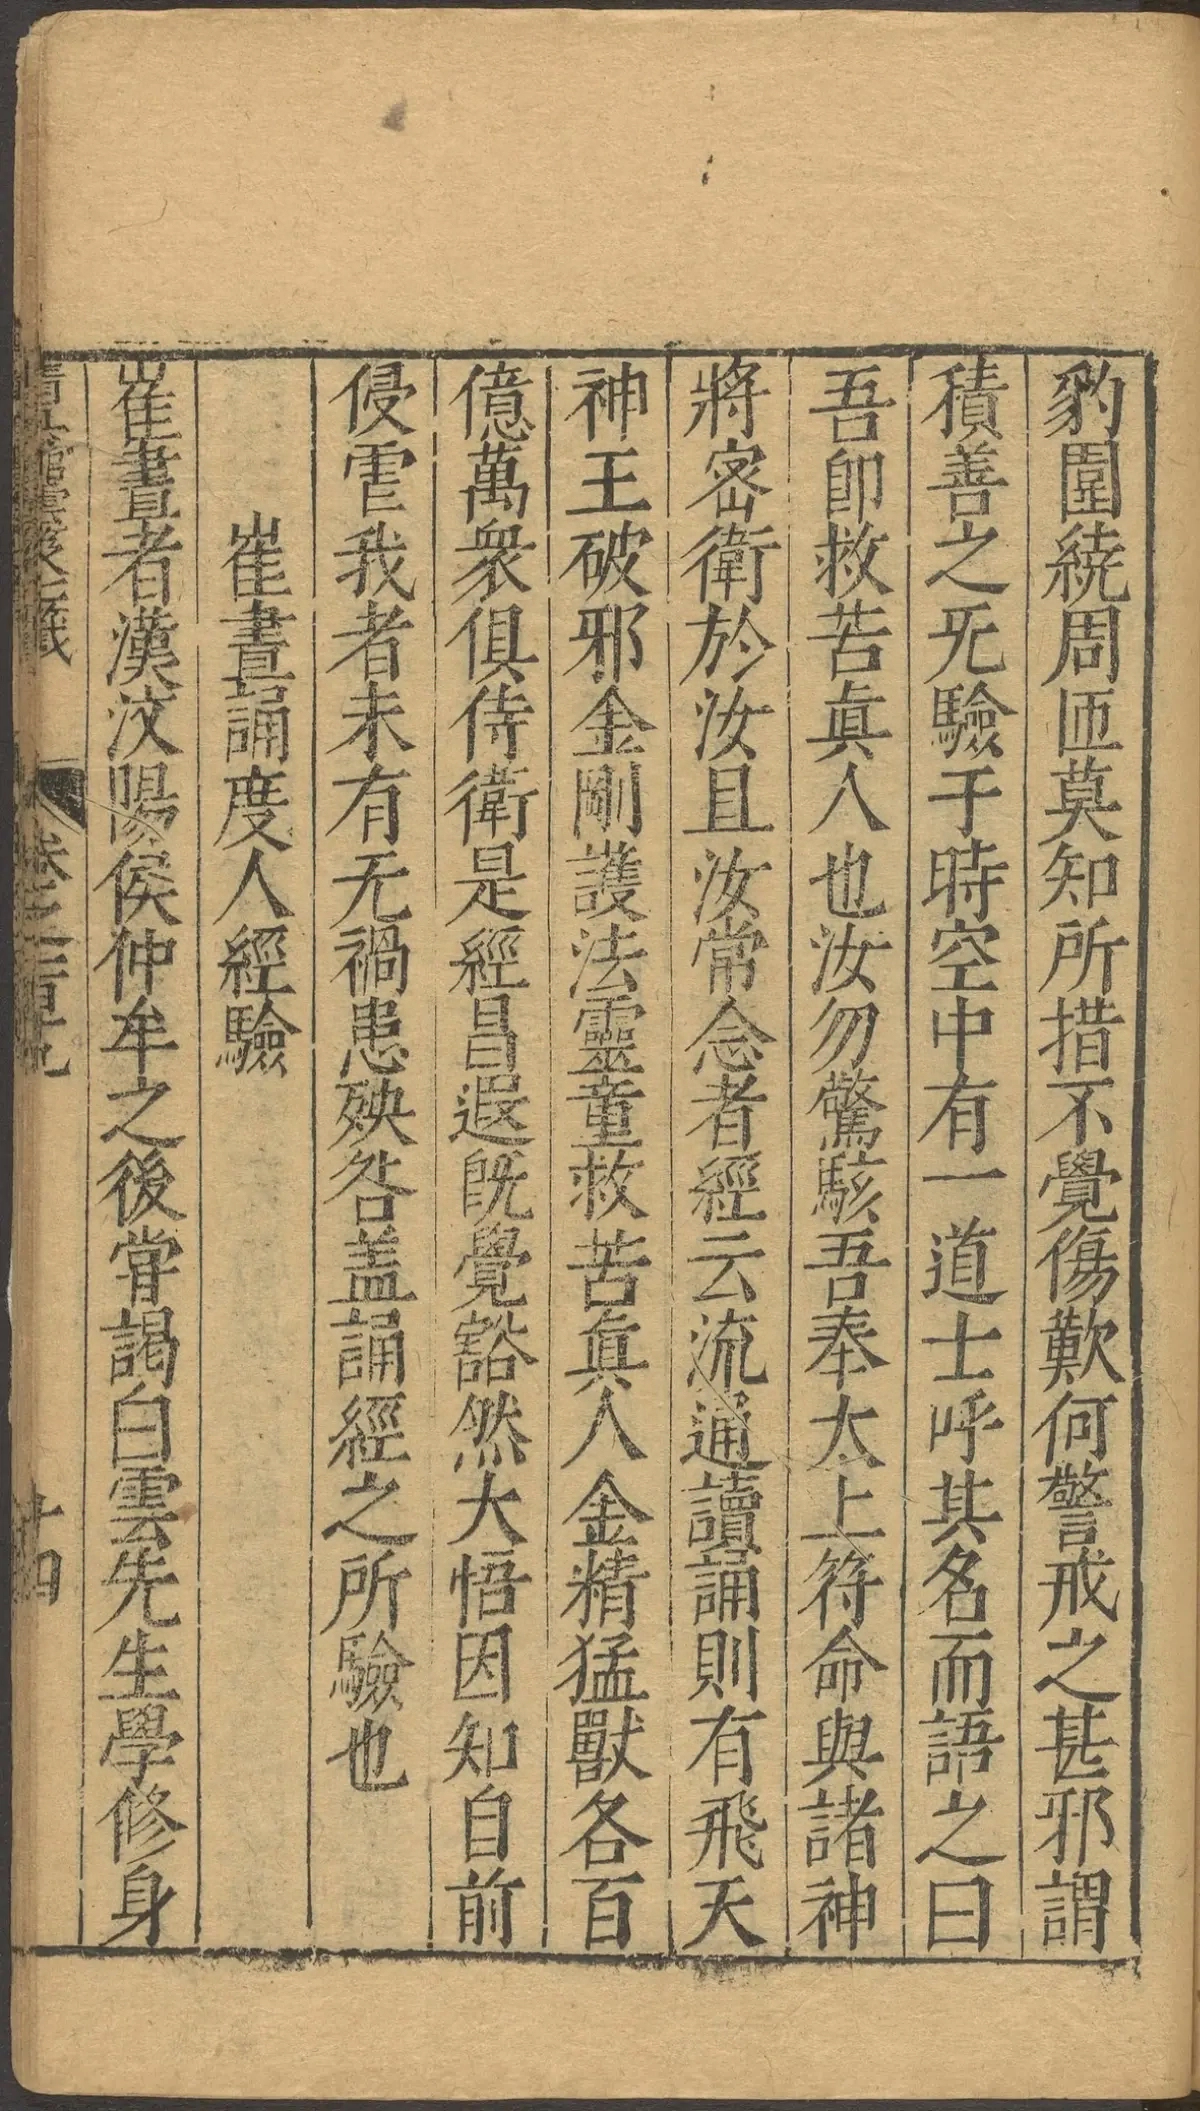 豹圍繞周匝莫知所措不覺傷歎何警戒之甚邪謂
積善之旡驗于時空中有一道士呼其名而語之曰
吾卽救苦眞人也汝勿驚駭吾奉太上符命與諸神
將密衛於汝且汝常念者經云流通讀誦則有飛天
神王破邪金剛護法靈童救苦眞人金精猛獸各百
億萬衆俱侍衛是經昌遐旣覺豁然大悟因知自前
侵霍我者未有无禍患殃咎盖誦經之所驗也
崔晝誦度人經驗
崔晝者漢汶陽侯仲牟之後甞謁白雲先生學修身
雲笈七籤
卷之一百十九
十四